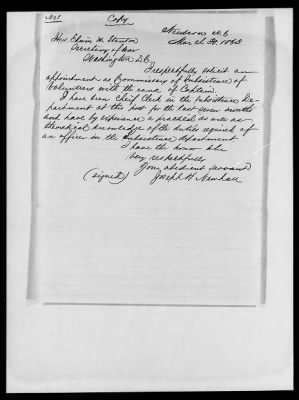 No 1. Copy
Newbern N.C.
March 30, 1863
Hon Edwin M. Stanton
Secretary of War
Washington D.C.
I respectfully solicit an
appointment as Commissary of Subsistence of
Volunteers with the rank of Captain.
I have been Chief Clerk in the Subsistence De-
partment at this post for the last seven months
and have by experience a practical as well as
theoretical knowledge of the duties required of
an officer in the Subsistence Department
I have the honor to be
Very respectfully
Your obedient servant
(signed) Joseph H. Newhall